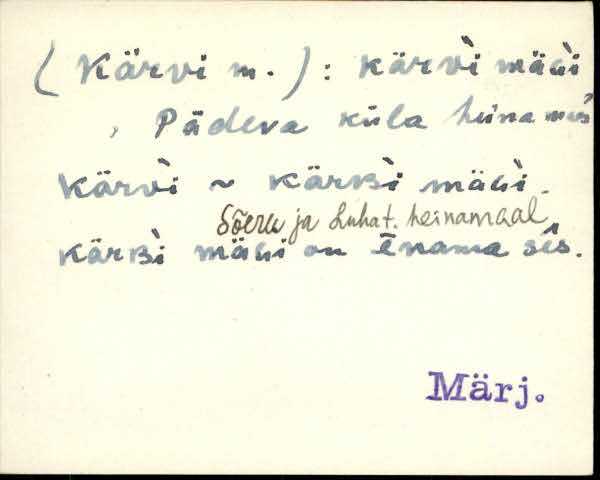 (Kärvi m.): kärvì mägi
, Pädeva küla heinamàs
kärvì ~ kärʙì mägi.
Sõeru ja Luhat. heinamaal
kärʙì mägi on ēnama sēs.
Märj.